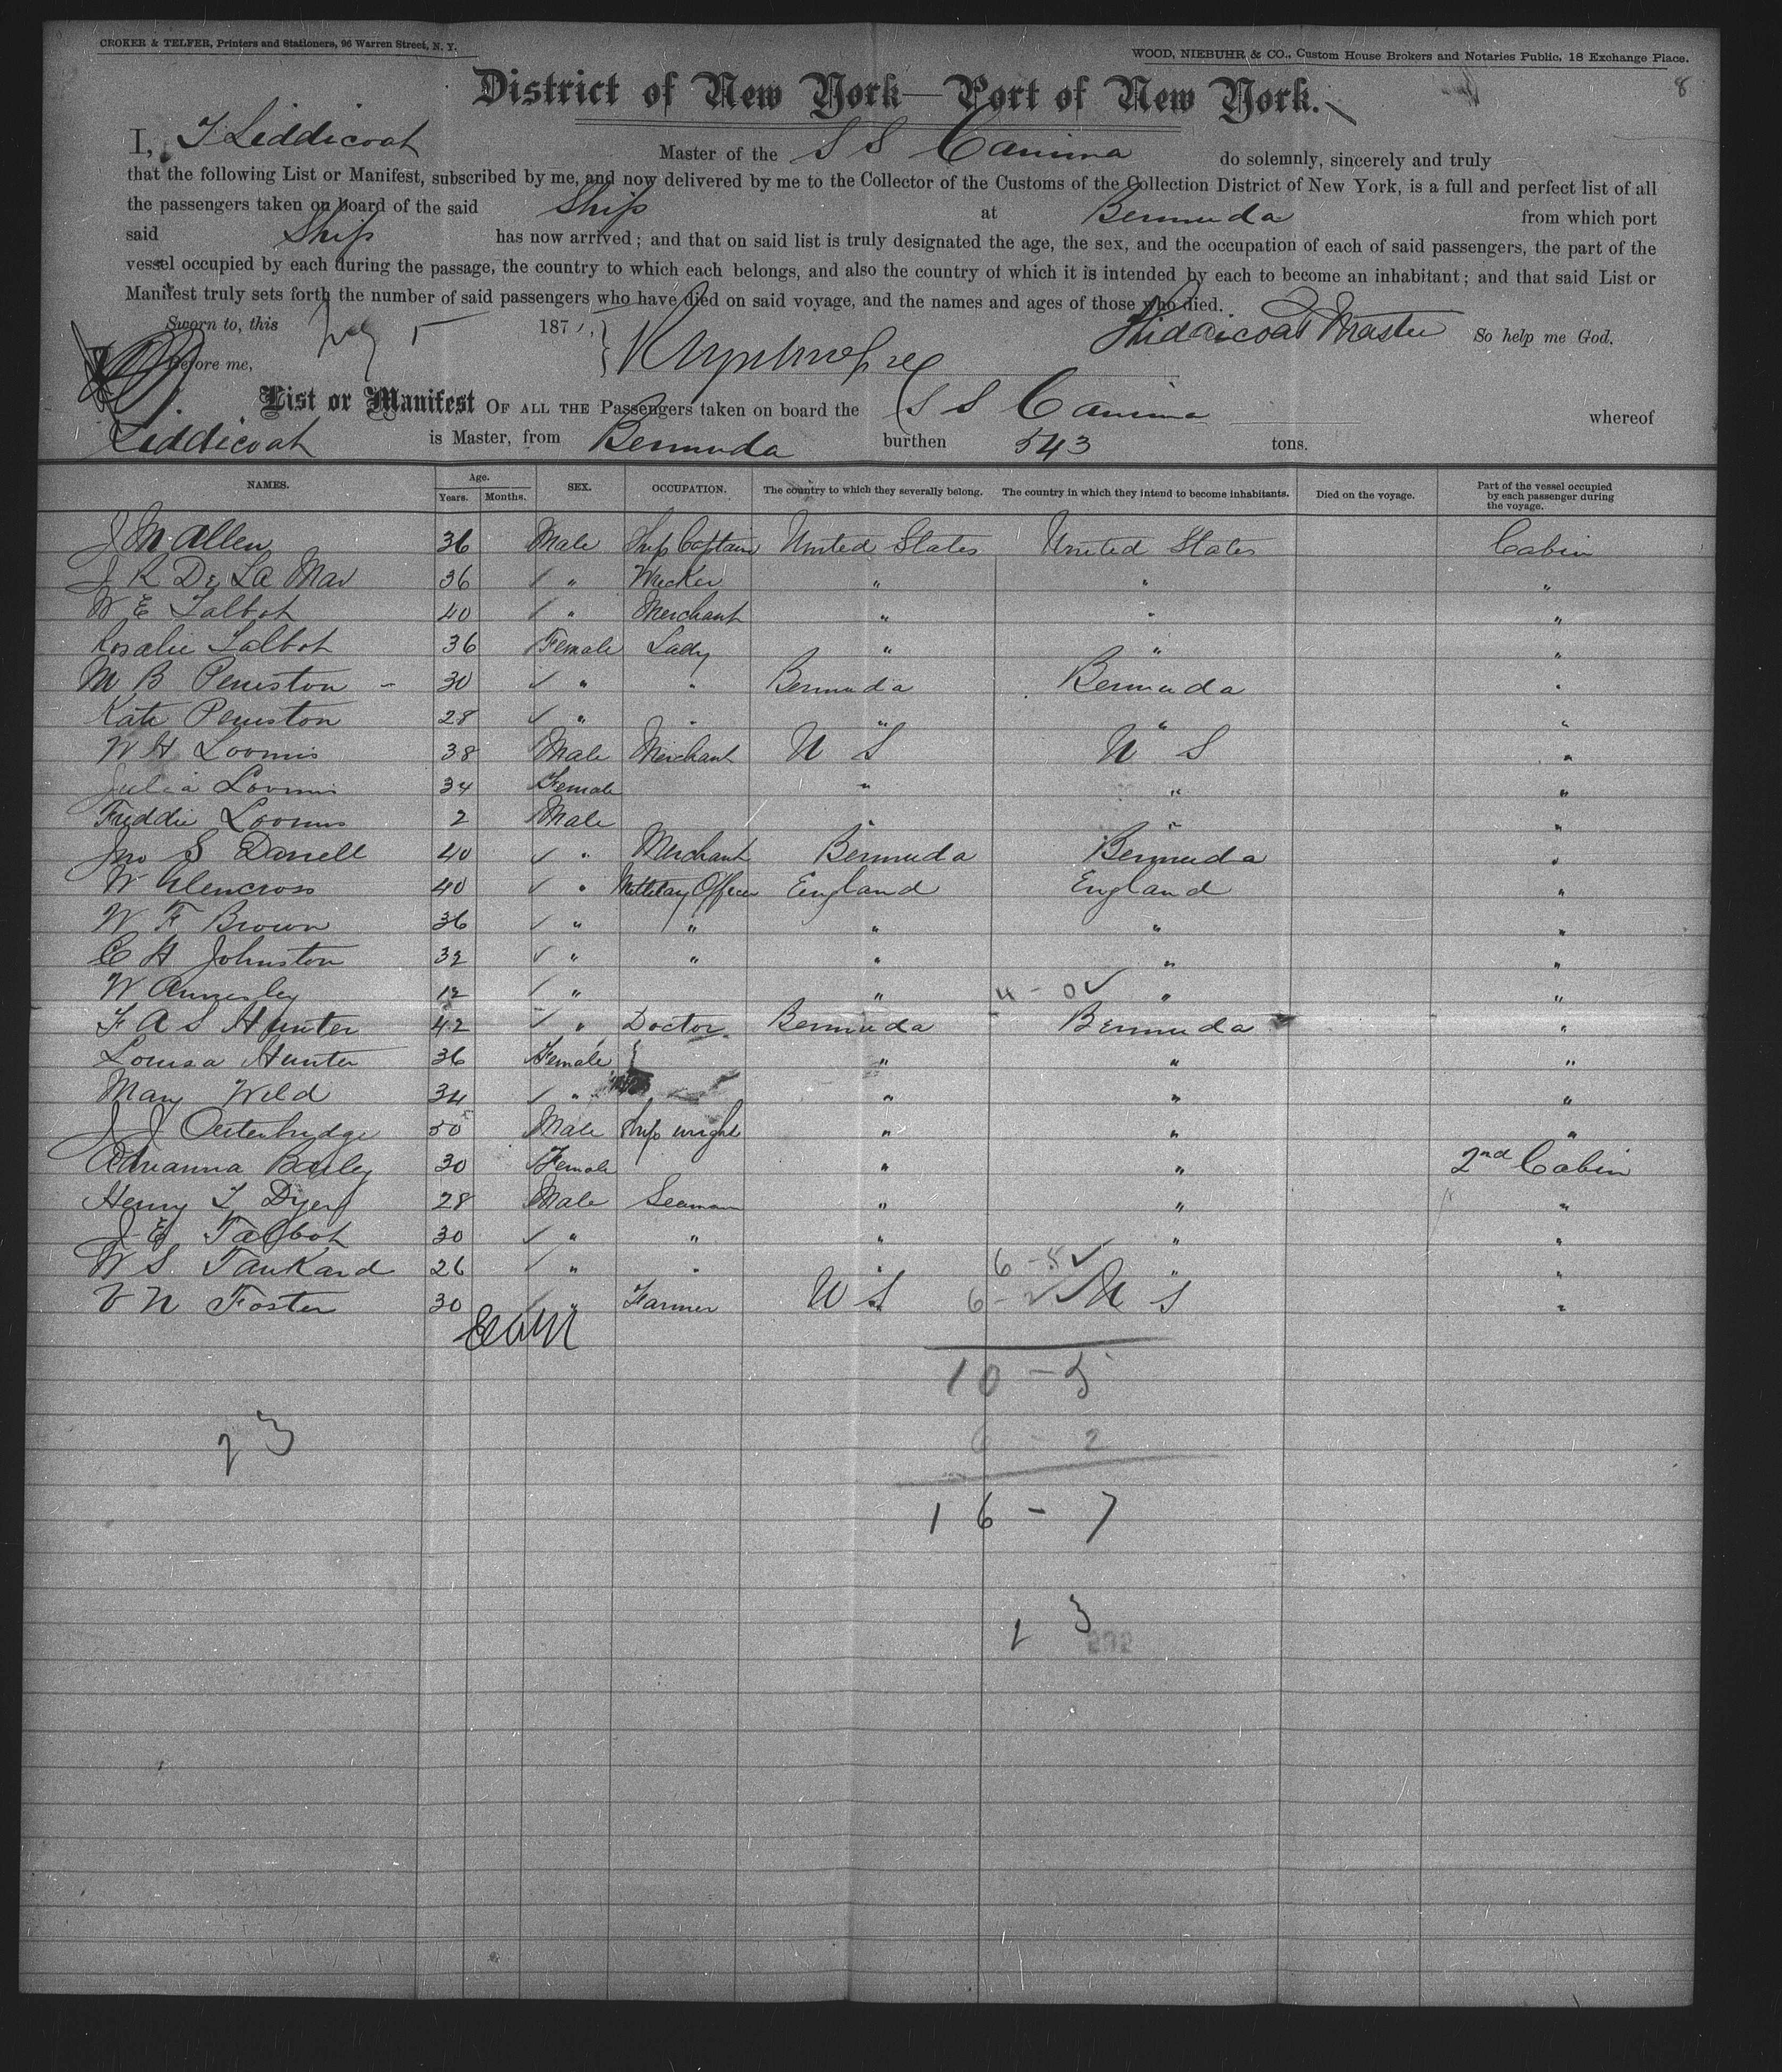 CROKER & TELFER, Printers and Stationers, 96 Warren Street, N. Y.
WOOD, NIEBUHR & CO., Custom House Brokers and Notaries Public, 18 Exchange Place.
8
District of New York—Port of New York.
I, J Liddicoat Master of the S S Canima do solemnly, sincerely and truly
that the following List or Manifest, subscribed by me, and now delivered by me to the Collector of the Customs of the Collection District of New York, is a full and perfect list of all
the passengers taken on board of the said Ship at Bermuda from which port
said Ship has now arrived; and that on said list is truly designated the age, the sex, and the occupation of each of said passengers, the part of the
vessel occupied by each during the passage, the country to which each belongs, and also the country of which it is intended by each to become an inhabitant; and that said List or
Manifest truly sets forth the number of said passengers who have died on said voyage, and the names and ages of those who died.
Sworn to, this 5 187 Liddicoat Master So help me God,
Before me,
List or Manifest OF ALL THE Passengers taken on board the S S Canima whereof
Liddicoat is Master, from Bermuda burthen 543 tons.
NAMES. Age. Years. Months. SEX. OCCUPATION. The country to which they severally belong. The country in which they intend to become inhabitants. Died on the voyage. Part of the vessel occupied by each passenger during the voyage.
J M Allen 36 Male Ship Captain United States United States Cabin
J R De La Mar 36 " Wrecker " " "
W E Talbot 40 " Merchant " " "
Rosalie Talbot 36 Female Lady " " "
M B Peniston 30 " " Bermuda Bermuda "
Kate Peniston 28 " " " " "
W H Loomis 38 Male Merchant U S U S "
Julia Loomis 34 Female " " "
Freddie Loomis 2 Male " " "
Jno S Darrell 40 " Merchant Bermuda Bermuda "
W Glencross 40 " Millitary Officer England England "
W F Brown 36 " " " " "
C H Johnston 32 " " " " "
W Annesley 12 " " 4 - 0 " "
F A S Hunter 42 " Doctor Bermuda Bermuda "
Louisa Hunter 36 Female " " "
Mary Wild 34 " " " "
J J Outerbridge 50 Male Ship wright " " "
Adrianna Bailey 30 Female " " 2nd Cabin
Henry T Dyer 28 Male Seaman " " "
J E Talbot 30 " " " " "
W S Tankard 26 " " " 6 - 5 " "
V N Foster 30 " Farmer U S 6 - 2 U S "
10 - 5
6 - 2
23
16 - 7
23
292